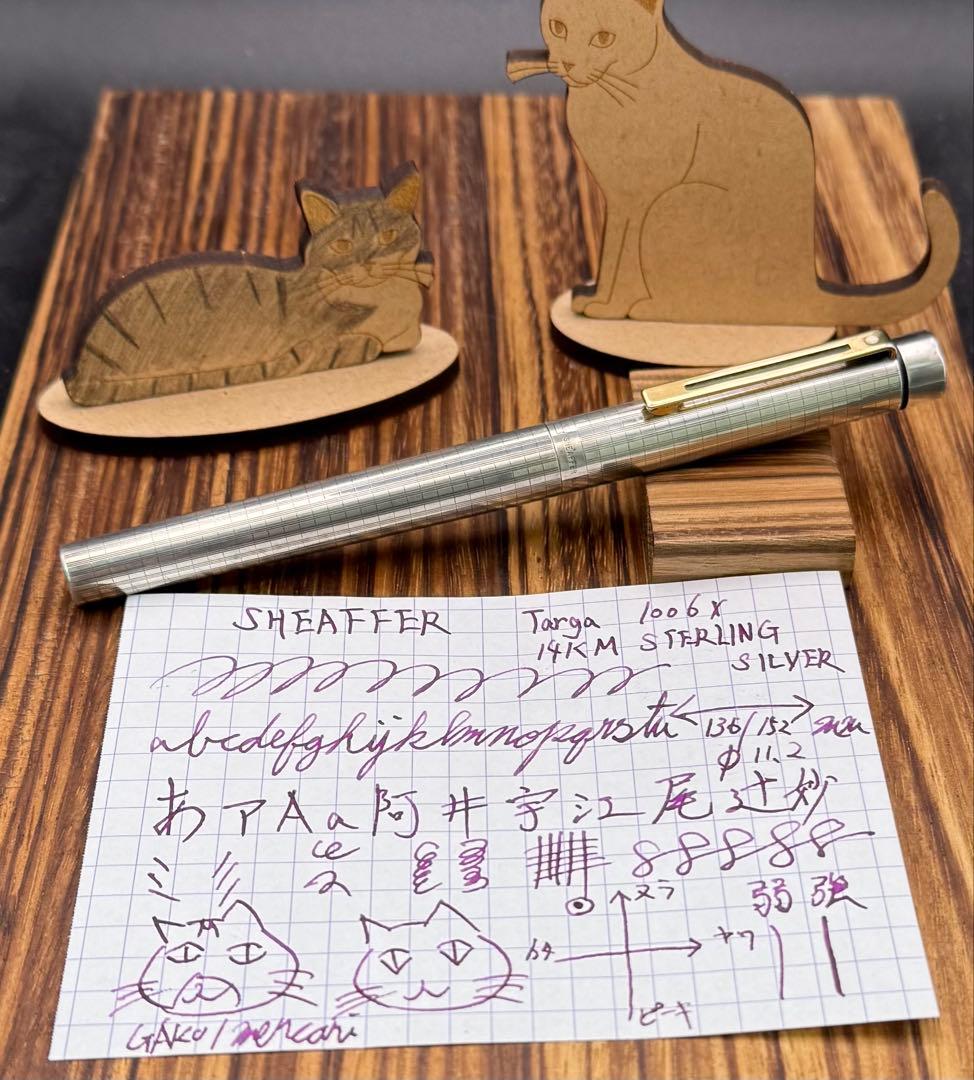 SHEAFFER
SHEAFFER Targa 1006X
14K M STERLING
SILVER
abcdefghijklmnopqrstu
136/152 mm
φ 11.2
あ ア A a 阿 井 宇 江 尾 辻 妙
ヌラ
弱 強
カタ ヤワ
ピーキ
GAKO/mercari